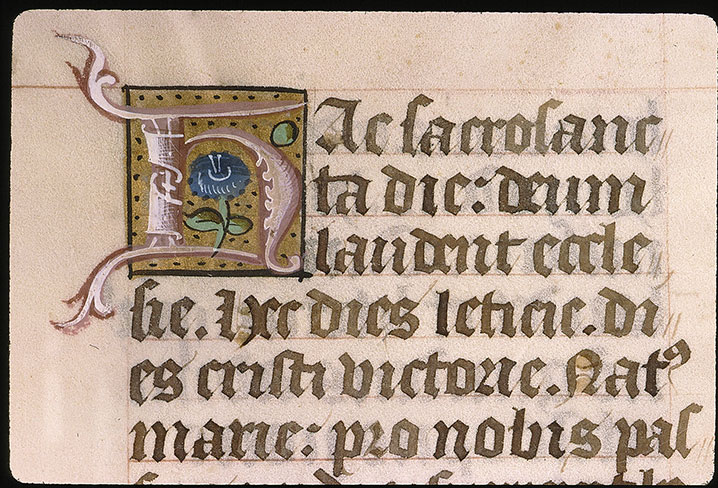 HAc sacrosanc
ta die: deum
laudent eccle
sie. Hec dies leticie. di
es cristi victorie. Nat⁹
marie: pro nobis pas